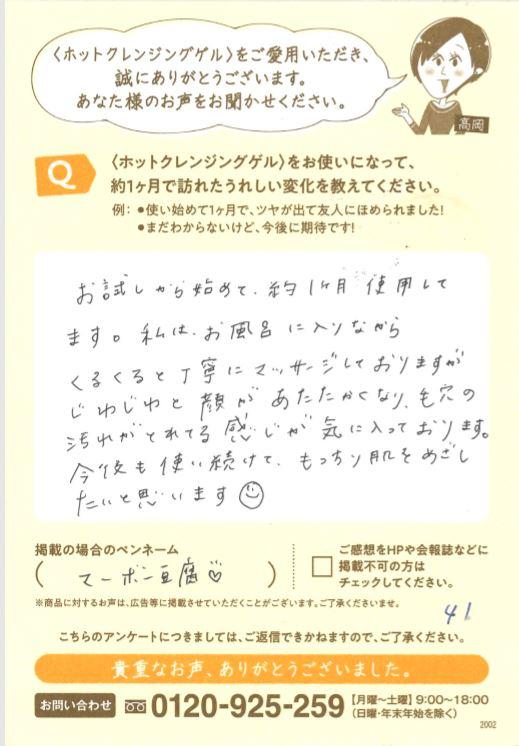 〈ホットクレンジングゲル〉をご愛用いただき、
誠にありがとうございます。
あなた様のお声をお聞かせください。
高岡
Q
〈ホットクレンジングゲル〉をお使いになって、
約1ヶ月で訪れたうれしい変化を教えてください。
例：●使い始めて1ヶ月で、ツヤが出て友人にほめられました!
●まだわからないけど、今後に期待です!
お試しから始めて、約1ヶ月 使用して
ます。私は、お風呂に入りながら
くるくると丁寧にマッサージしておりますが
じわじわと顔があたたかくなり、毛穴の
汚れがとれてる感じが気に入っております。
今後も使い続けて、もっちり肌をめざし
たいと思います☺
掲載の場合のペンネーム
(マーボー豆腐♡)
ご感想をHPや会報誌などに
掲載不可の方は
チェックしてください。
※商品に対するお声は、広告等に掲載させていただくことがございます。ご了承くださいませ。
41
こちらのアンケートにつきましては、ご返信できかねますので、ご了承ください。
貴重なお声、ありがとうございました。
お問い合わせ 0120-925-259 【月曜〜土曜】9:00〜18:00
（日曜・年末年始を除く）
2002